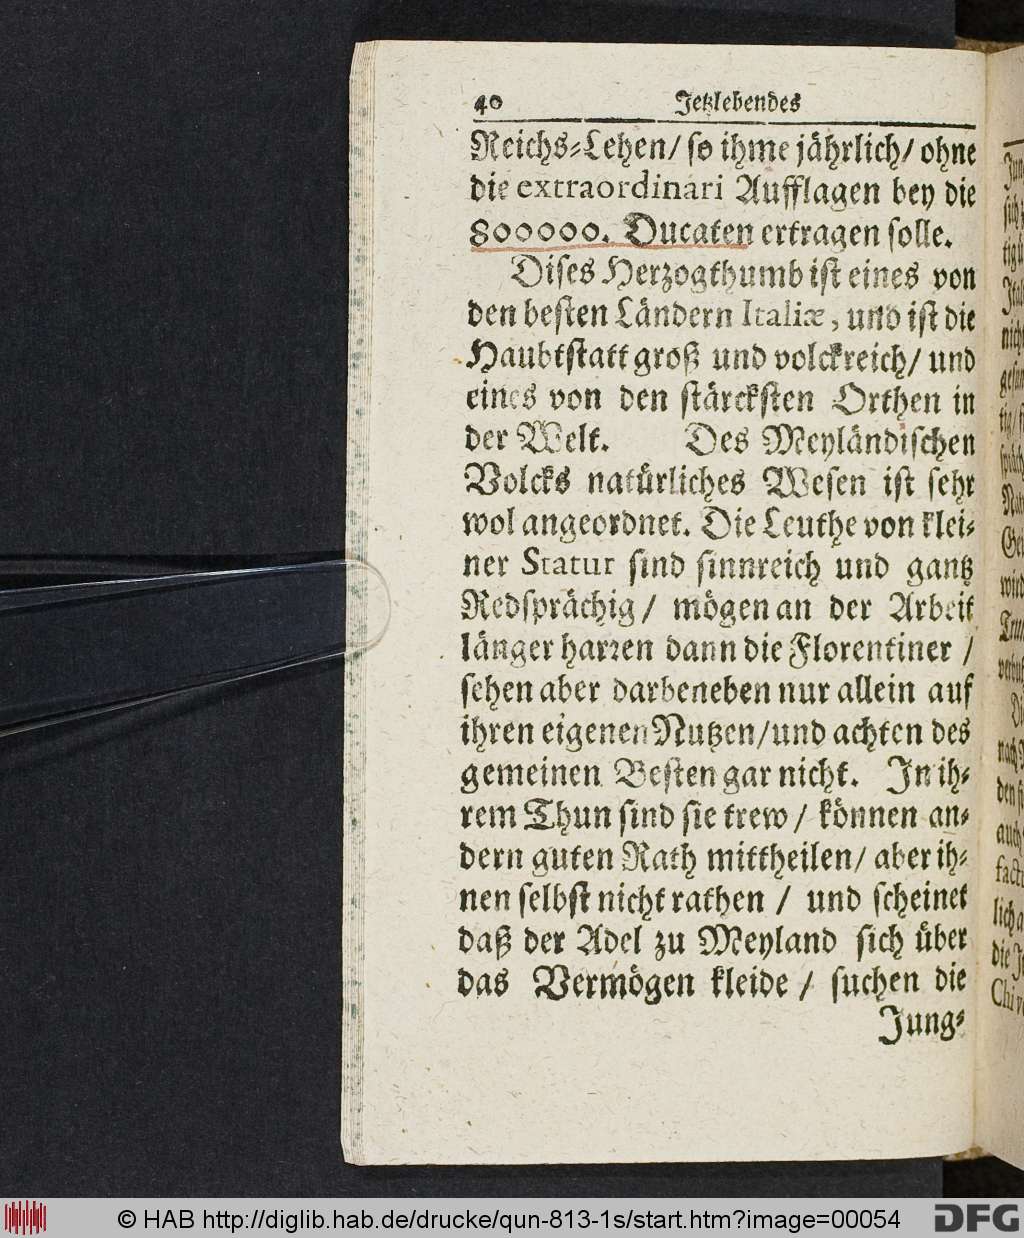 40 Jetzlebendes
Reichs-Lehen/ so ihme jährlich/ ohne
die extraordinari Aufflagen bey die
800000. Ducaten ertragen solle.
Dises Herzogthumb ist eines von
den besten Ländern Italiæ, und ist die
Haubtstatt groß und volckreich/ und
eines von den stärcksten Orthen in
der Welt. Des Meyländischen
Volcks natürliches Wesen ist sehr
wol angeordnet. Die Leuthe von klei-
ner Statur sind sinnreich und gantz
Redsprächig/ mögen an der Arbeit
länger harren dann die Florentiner /
sehen aber darbeneben nur allein auf
ihren eigenen Nutzen/und achten des
gemeinen Besten gar nicht. In ih-
rem Thun sind sie trew/ können an-
dern guten Rath mittheilen/ aber ih-
nen selbst nicht rathen / und scheinet
daß der Adel zu Meyland sich über
das Vermögen kleide / suchen die
Jung-
© HAB http://diglib.hab.de/drucke/qun-813-1s/start.htm?image=00054
DFG